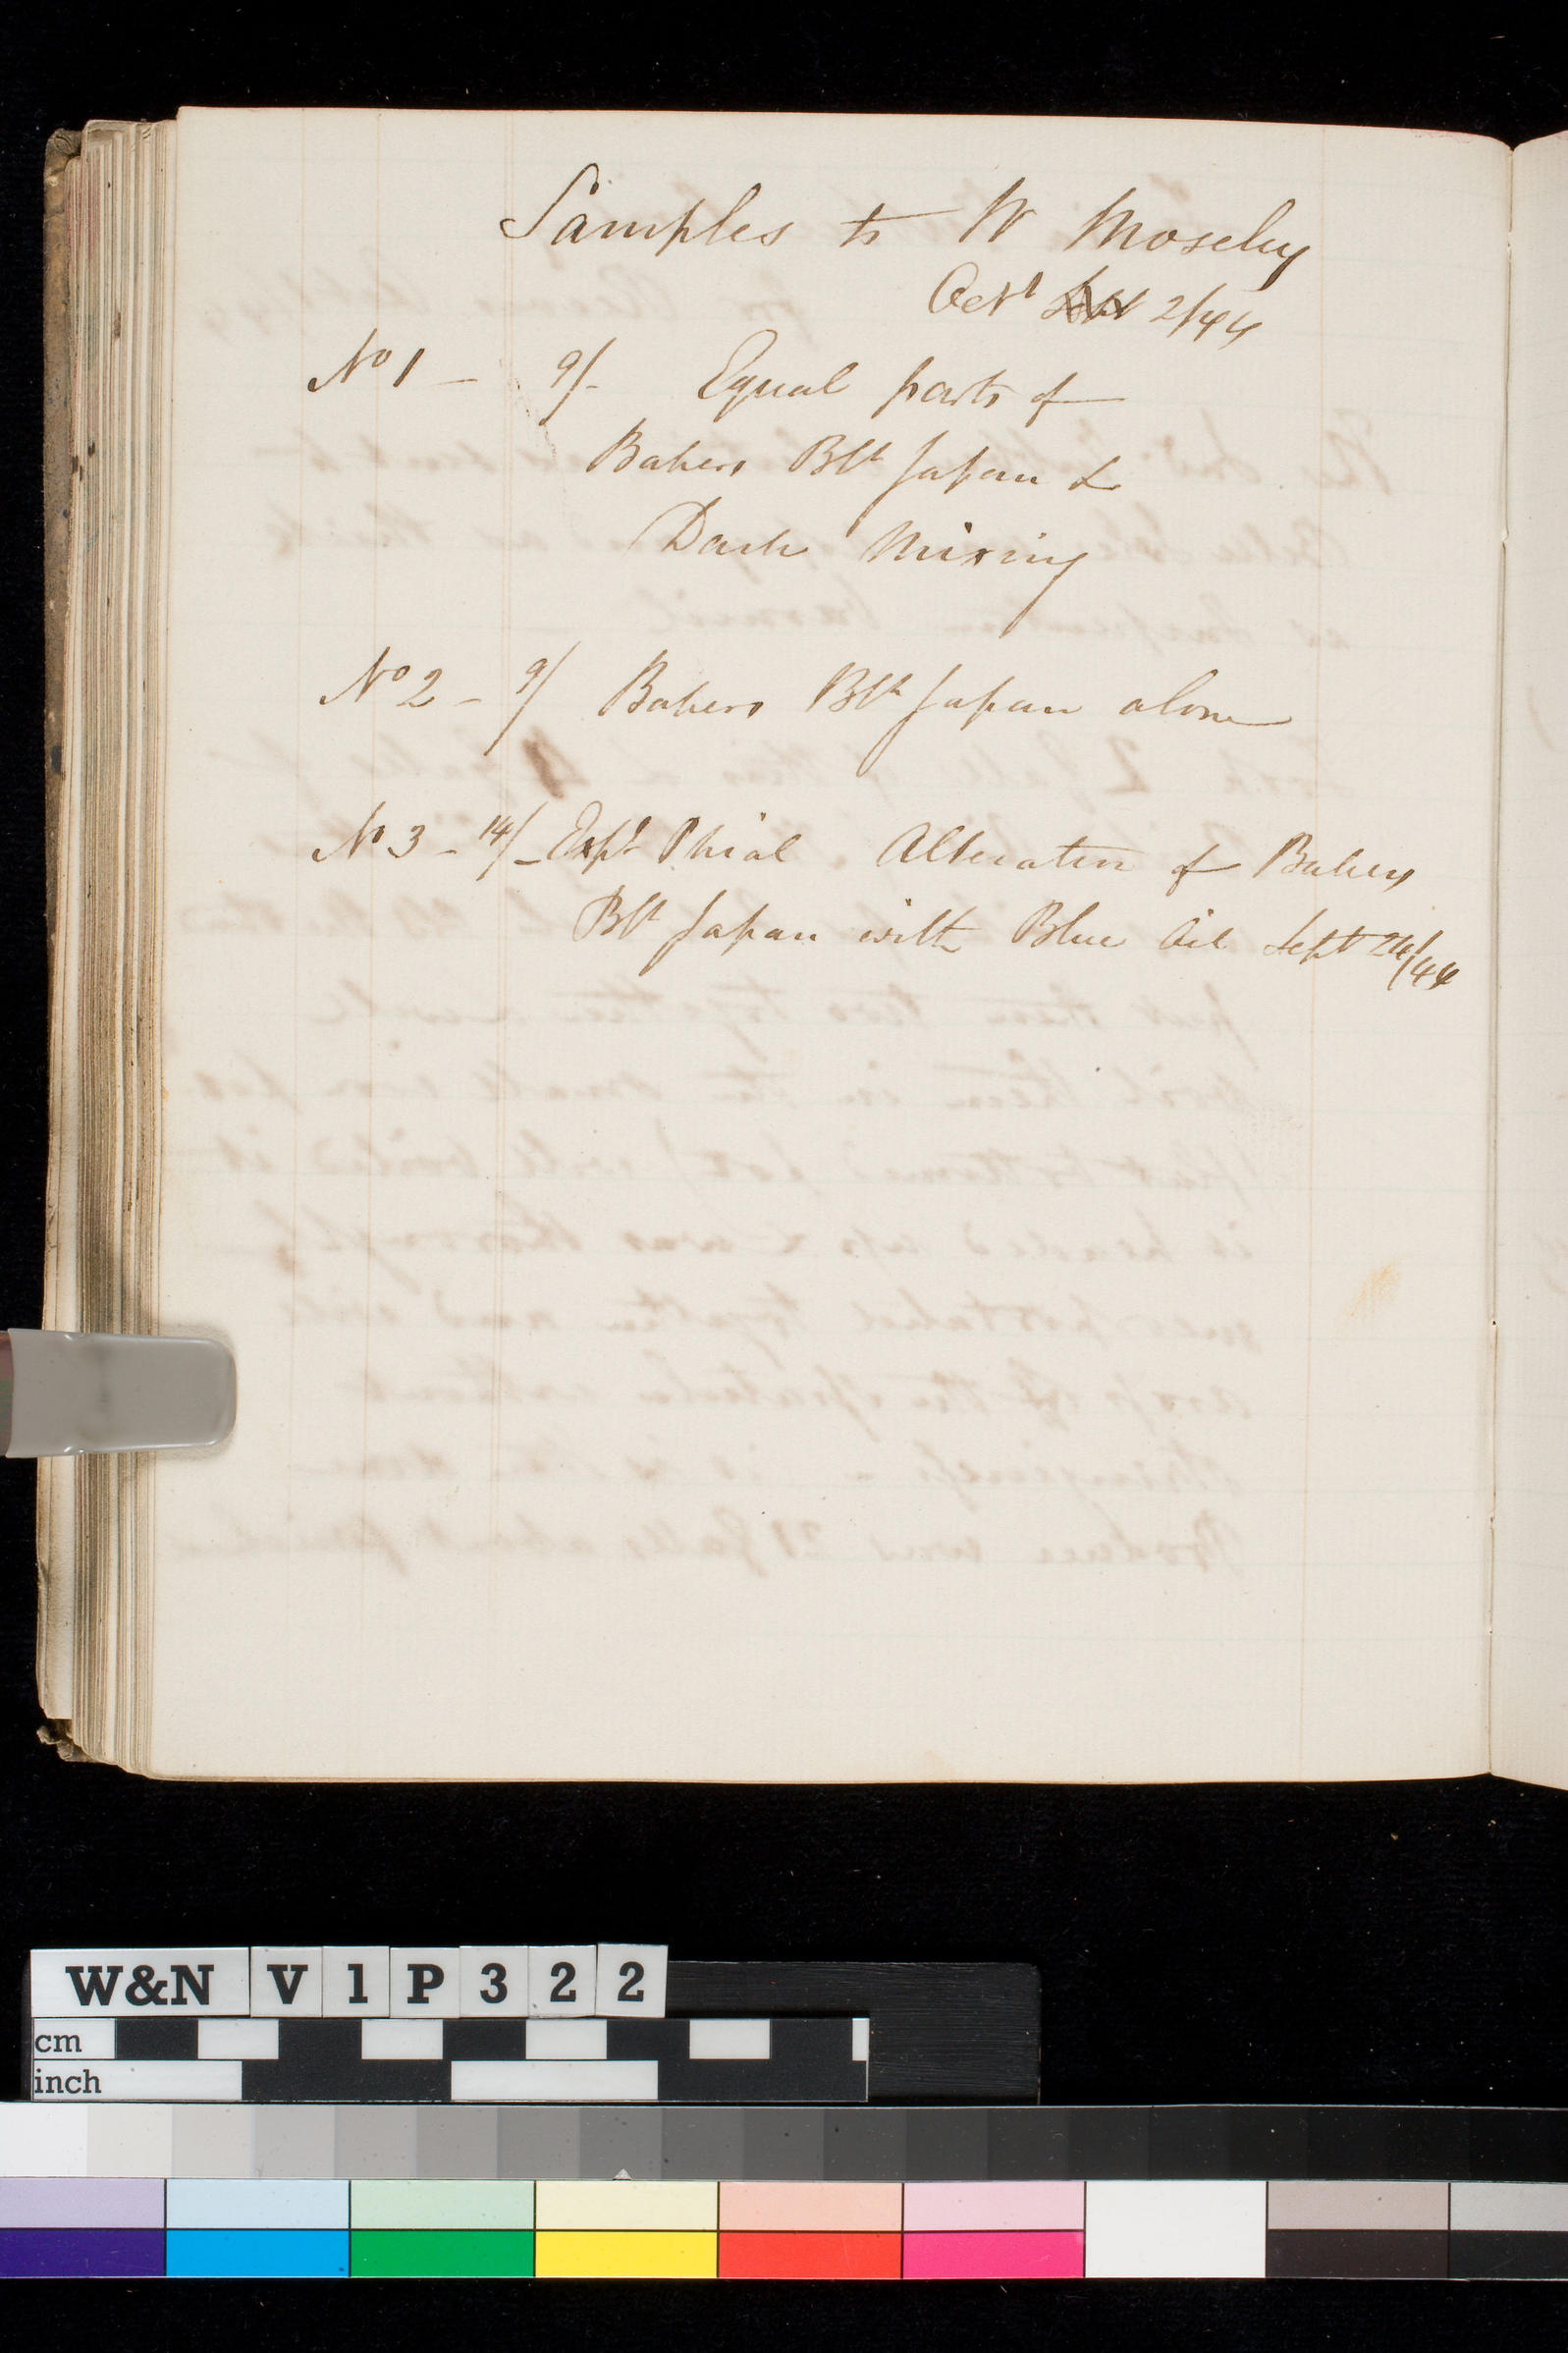 Samples to W Moseley
Octr 2/44
No 1 - 9/- Equal parts of
Bakers Blk Japan &
Dark Mixing
No 2 - 9/ Bakers Blk Japan alone
No 3 - 14/- Expt Phial Alteration of Bakers
Blk Japan with Blue Oil Sept 26/44
W&N V1P322
cm
inch